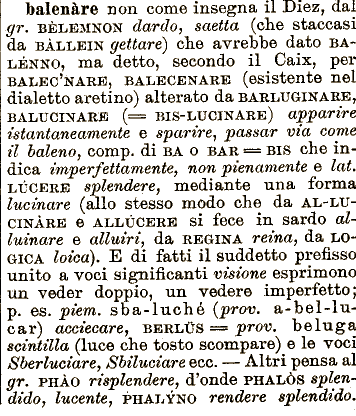 balenàre non come insegna il Diez, dal
gr. BÈLEMNON dardo, saetta (che staccasi
da BÀLLEIN gettare) che avrebbe dato BA-
LÉNNO, ma detto, secondo il Caix, per
BALEC'NARE, BALECENARE (esistente nel
dialetto aretino) alterato da BARLUGINARE,
BALUCINARE (= BIS-LUCINARE) apparire
istantaneamente e sparire, passar via come
il baleno, comp. di BA O BAR = BIS che in-
dica imperfettamente, non pienamente e lat.
LÚCERE splendere, mediante una forma
lucinare (allo stesso modo che da AL-LU-
CINÀRE e ALLÚCERE si fece in sardo al-
luinare e alluiri, da REGINA reina, da LO-
GICA loica). E di fatti il suddetto prefisso
unito a voci significanti visione esprimono
un veder doppio, un vedere imperfetto;
p. es. piem. sba-luché (prov. a-bel-lu-
car) acciecare, BERLÛS = prov. beluga
scintilla (luce che tosto scompare) e le voci
Sberluciare, Sbiluciare ecc. — Altri pensa al
gr. PHÀO risplendere, d'onde PHALÒS splen-
dido, lucente, PHALÝNO rendere splendido.